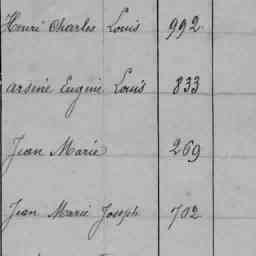 Henri Charles Louis 992
Arsène Eugène Louis 833
Jean Marie 269
Jean Marie Joseph 702